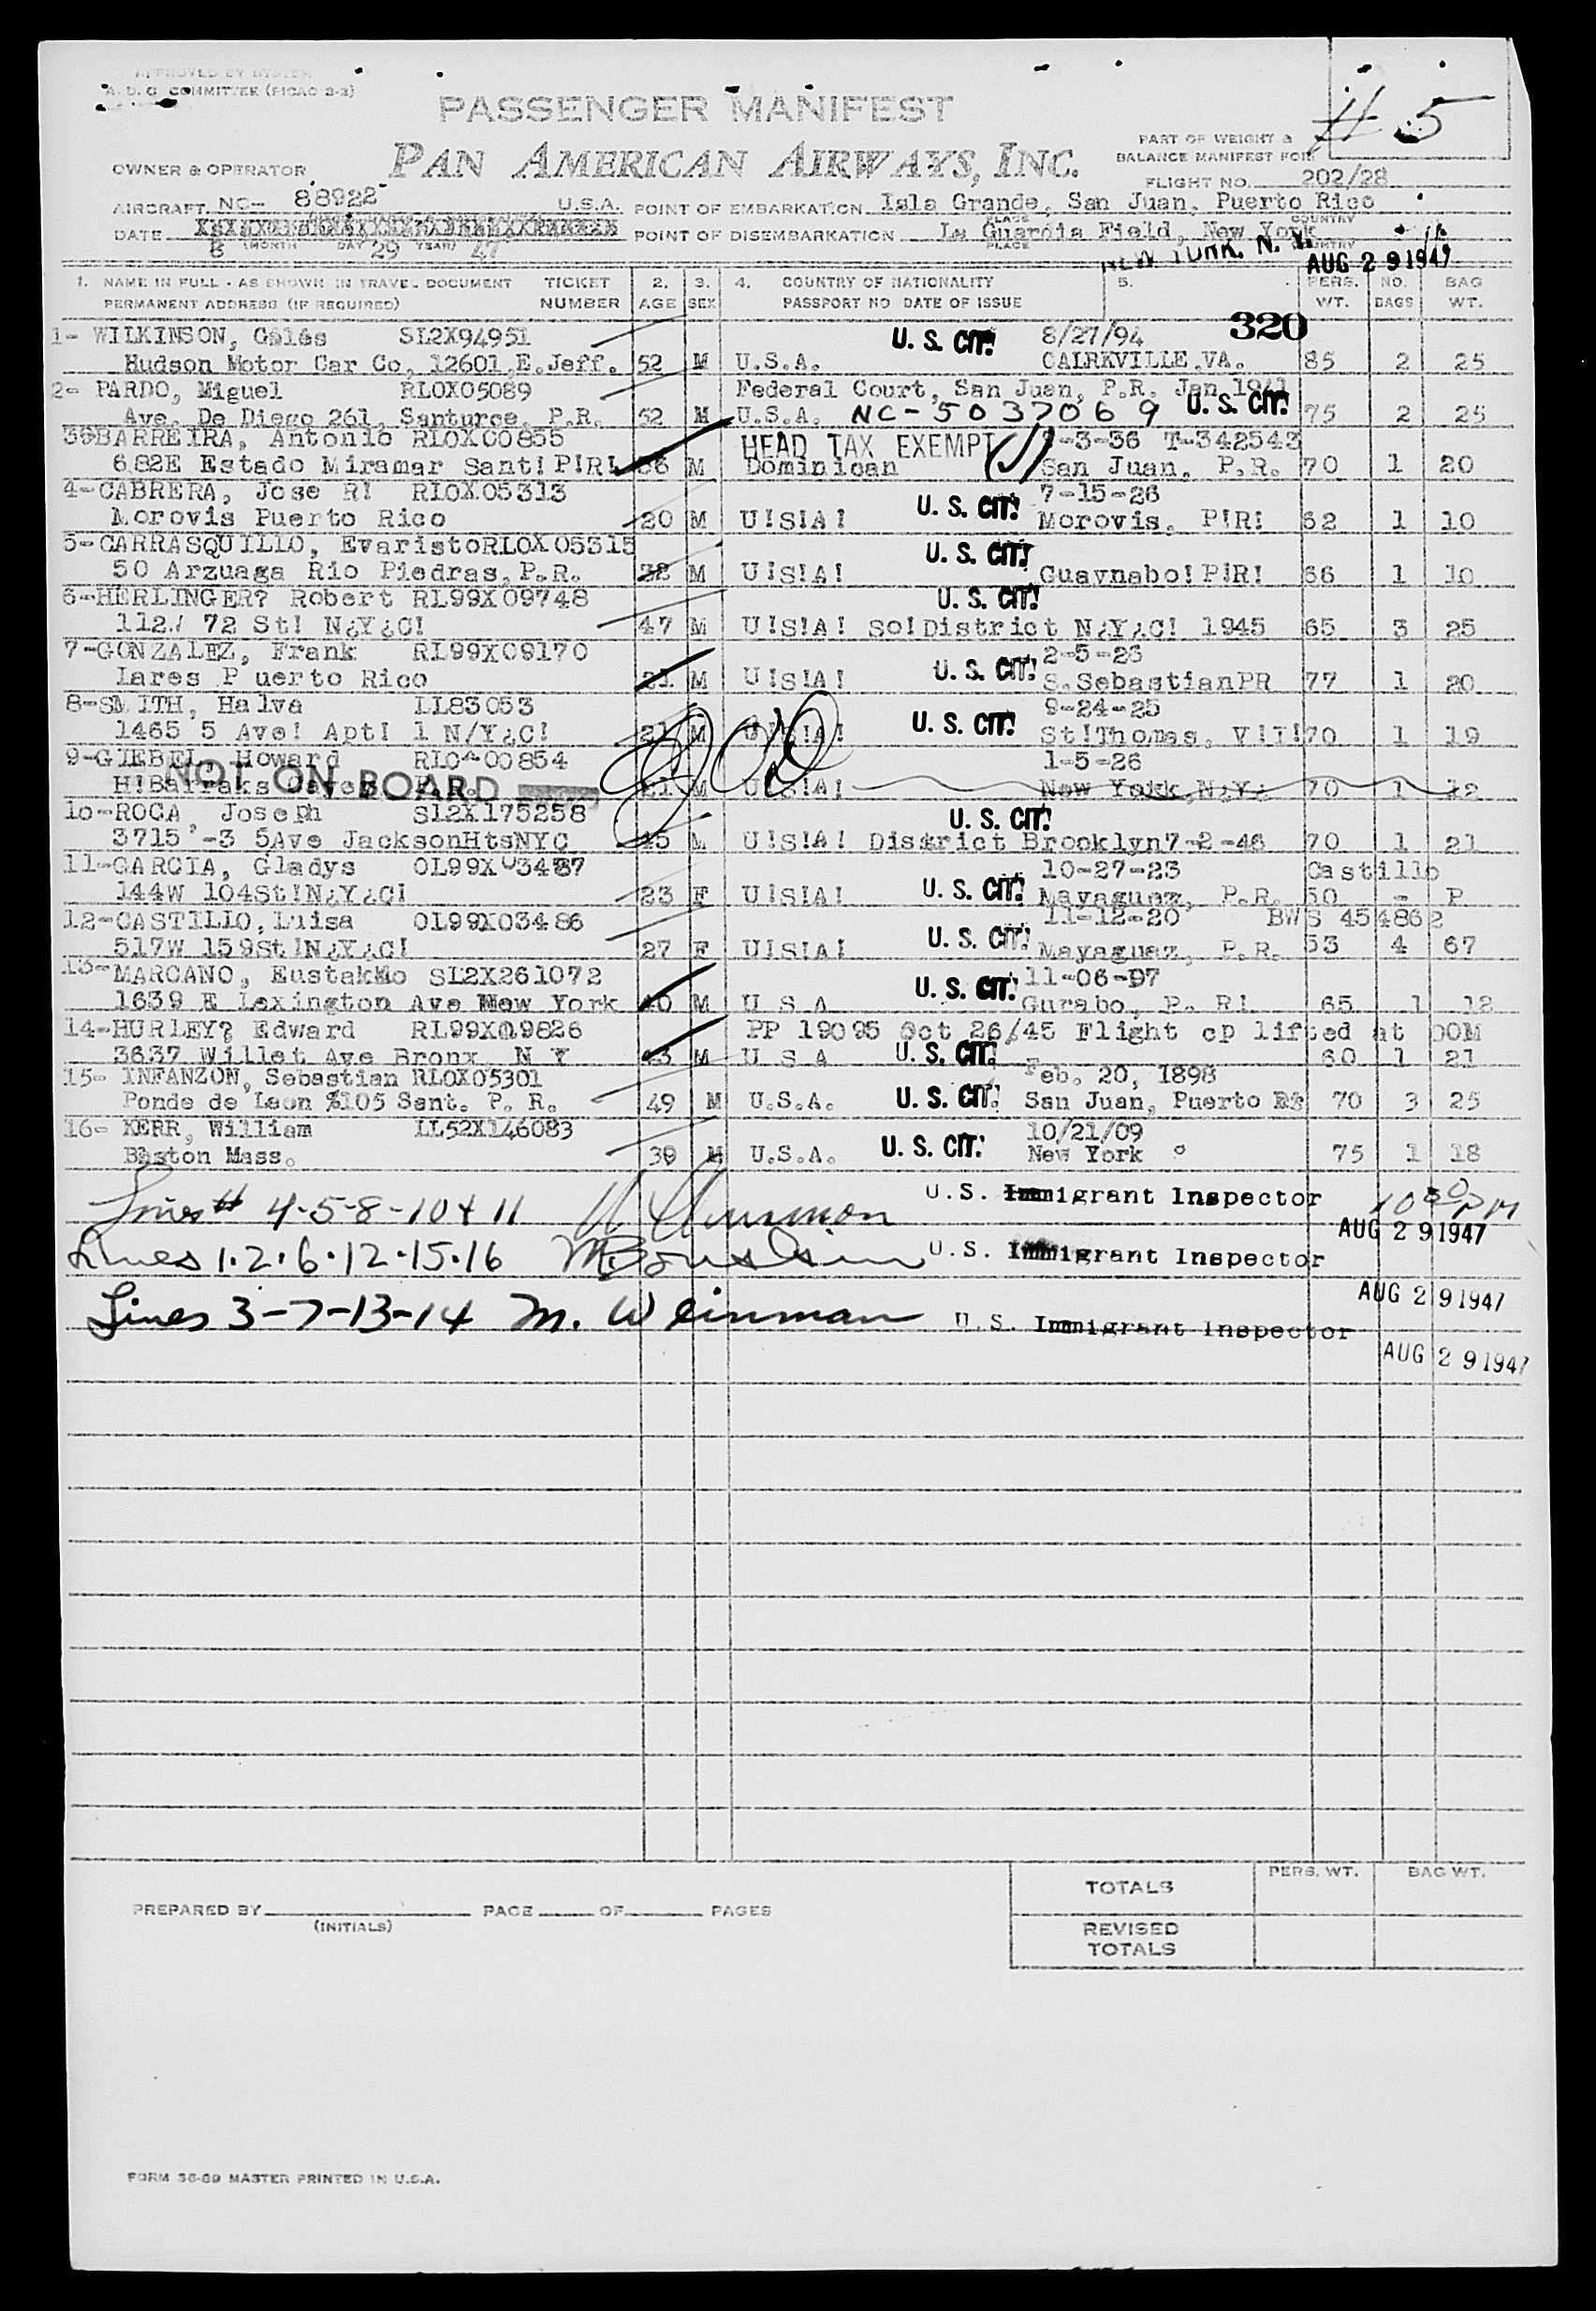 APPROVED BY SYSTEM
A. D. C. COMMITTEE (PICAO 3-3)
# 5
PASSENGER MANIFEST
PAN AMERICAN AIRWAYS, INC.
PART OF WEIGHT &
BALANCE MANIFEST FOR
OWNER & OPERATOR
FLIGHT NO. 202/28
AIRCRAFT NC- 88922 U.S.A. POINT OF EMBARKATION Isla Grande, San Juan, Puerto Rico
PLACE COUNTRY
DATE POINT OF DISEMBARKATION La Guardia Field, New York
8 (MONTH DAY 29 YEAR) 47 PLACE COUNTRY
NEW YORK, N. Y. AUG 29 1947
1. NAME IN FULL - AS SHOWN IN TRAVEL DOCUMENT TICKET 2. 3. 4. COUNTRY OF NATIONALITY 5. PERS. NO. BAG
PERMANENT ADDRESS (IF REQUIRED) NUMBER AGE SEX PASSPORT NO DATE OF ISSUE WT. BAGS WT.
1- WILKINSON, SL2X94951 U. S. CIT. 8/27/94 320
Hudson Motor Car Co, 12601 E. Jeff. 52 M U.S.A. CAIRKVILLE,VA. 85 2 25
2- PARDO, Miguel RLOX05089 Federal Court, San Juan, P.R. Jan.1941
Ave. De Diego 261, Santurce, P.R. 52 M U.S.A. NC-5037069 U. S. CIT. 75 2 25
BARREIRA, Antonio RLOX00855 HEAD TAX EXEMPT -3-36 T-342543
682E Estado Miramar Sant! P!R! M Dominican San Juan, P.R. 70 1 20
4-CABRERA, Jose R! RLOX05313 U. S. CIT. 7-15-26
Morovis Puerto Rico 20 M U!S!A! Morovis, P!R! 62 1 10
5-CARRASQUILLO, EvaristoRLOX05315 U. S. CIT.
50 Arzuaga Rio Piedras,P.R. 32 M U!S!A! Guaynabo!P!R! 66 1 10
6-HERLINGER? Robert RL99X09748 U. S. CIT.
112 72 St! N¿Y¿C! 47 M U!S!A! So!District N¿Y¿C! 1945 65 3 25
7-GONZALEZ, Frank RL99X09170 2-5-26
Lares P uerto Rico 21 M U!S!A! U. S. CIT. S.SebastianPR 77 1 20
8-SMITH, Halva LL83053 9-24-25
1465 5 Ave! Apt! 1 N/Y¿C! 21 M U!S!A! U. S. CIT. St!Thomas, V!I! 70 1 19
9-GIEBEL, Howard 00854 1-5-26
NOT ON BOARD
H!Barraks 21 M U!S!A! New York,N¿Y¿ 70 1 12
10-ROCA, Joseph SL2X175258 U. S. CIT.
3715 -3 5Ave JacksonHtsNYC 45 M U!S!A! District Brooklyn7-2-46 70 1 21
11-GARCIA, Gladys OL99X03487 10-27-23 Castillo
144W 104St!N¿Y¿C! 23 F U!S!A! U. S. CIT. Mayaguez, P.R. 50 - P
12-CASTILLO,Luisa OL99X03486 11-12-20 BWS 454862
517W 159St!N¿Y¿C! 27 F U!S!A! U. S. CIT. Mayaguez, P.R. 53 4 67
13-MARCANO, SL2X261072 U. S. CIT. 11-06-97
1639 E Lexington Ave New York M U S A Gurabo, P. R! 65 1 12
14-HURLEY? Edward RL99X09826 PP 19095 Oct 26/45 Flight cp lifted at OOM
3637 Willet Ave Bronx N Y M U S A U. S. CIT. 60 1 21
15- INFANZON, Sebastian RLOX05301 Feb. 20, 1898
Ponde de Leon %105 Sant. P. R. 49 M U.S.A. U. S. CIT. San Juan, Puerto 70 3 25
16- KERR, William LL52X146083 10/21/09
Boston Mass. 39 M U.S.A. U. S. CIT. New York 75 1 18
Lines # 4-5-8-10 & 11 U.S. Immigrant Inspector 10 30 PM
AUG 29 1947
Lines 1.2.6.12.15.16 U.S. Immigrant Inspector
AUG 29 1947
Lines 3-7-13-14 M. Weinman U.S. Immigrant Inspector
AUG 29 1947
PERS. WT. BAG WT.
TOTALS
PREPARED BY PAGE OF PAGES
(INITIALS)
REVISED
TOTALS
FORM 36-89 MASTER PRINTED IN U.S.A.